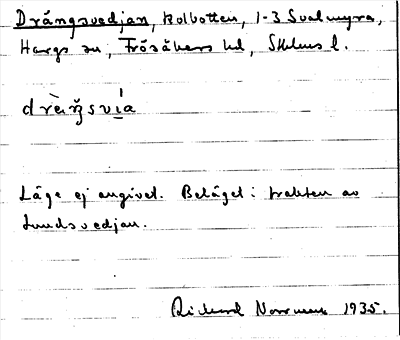 Drängsvedjan, kolbotten, 1-3 Svalmyra,
Hargs sn, Frösåkers hd, Sthlms l.
drèŋsvía
Läge ej angivet. Beläget i trakten av
Lundsvedjan.
Rickard Norrman 1935.